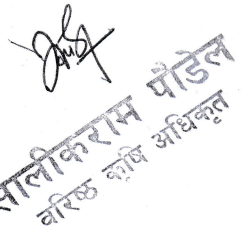 सालीकराम पौडेल
वरिष्ठ कृषि अधिकृत